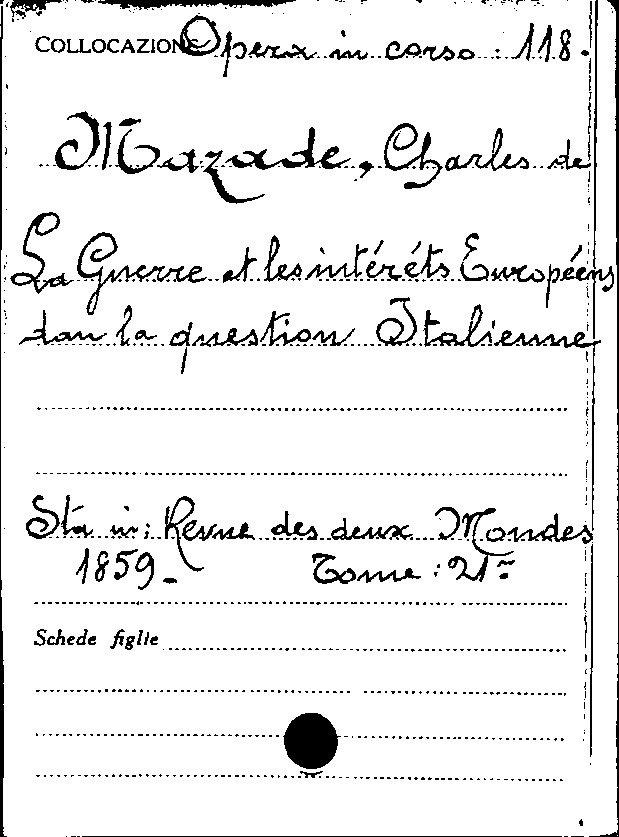 COLLOCAZIONE Opera in corso : 118.
Mazade, Charles de
La Guerre et les intéréts Européens
dan la question Italienne
Sta in: Revue des deux Mondes
1859_ Tome : 21
Schede figlie